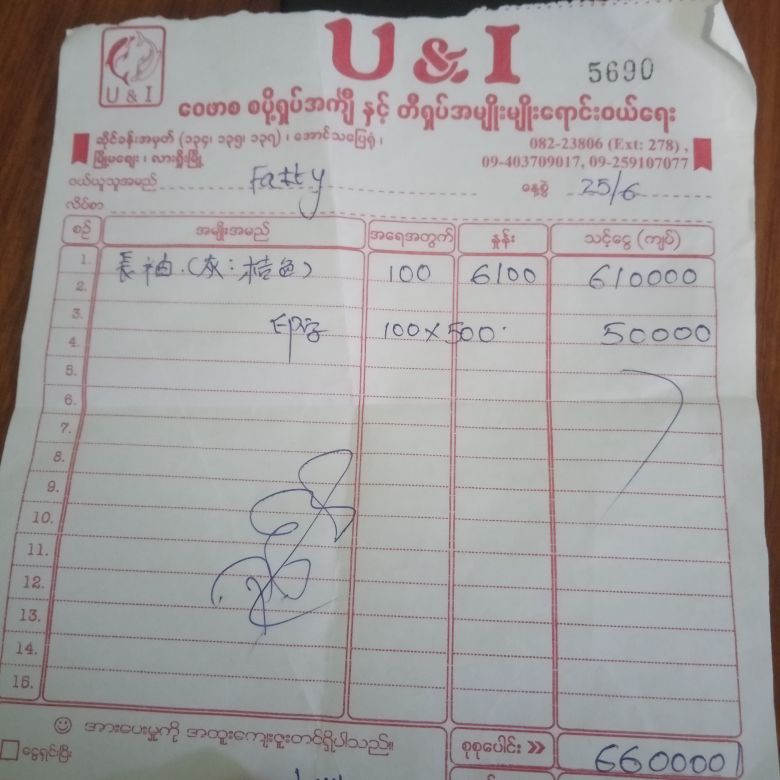 U & I
U & I
5690
ဝေဟာစ စပို့ရှပ်အင်္ကျီ နှင့် တီရှပ်အမျိုးမျိုးရောင်းဝယ်ရေး
ဆိုင်ခန်းအမှတ် (၁၃၄၊ ၁၃၅၊ ၁၃၇) ၊ အောင်သပြေရုံ ၊
မြို့မဈေး ၊ လားရှိုးမြို့
082-23806 (Ext: 278) ,
09-403709017, 09-259107077
ဝယ်ယူသူအမည် Fatty နေ့စွဲ 25/6
လိပ်စာ
စဉ် အမျိုးအမည် အရေအတွက် နှုန်း သင့်ငွေ (ကျပ်)
1. 長袖.(灰:桔色) 100 6100 610000
2.
3.
4. 100 x 500 50000
5.
6.
7.
8.
9.
10.
11.
12.
13.
14.
15.
အားပေးမှုကို အထူးကျေးဇူးတင်ရှိပါသည်။
ငွေရှင်းပြီး စုစုပေါင်း >> 660000